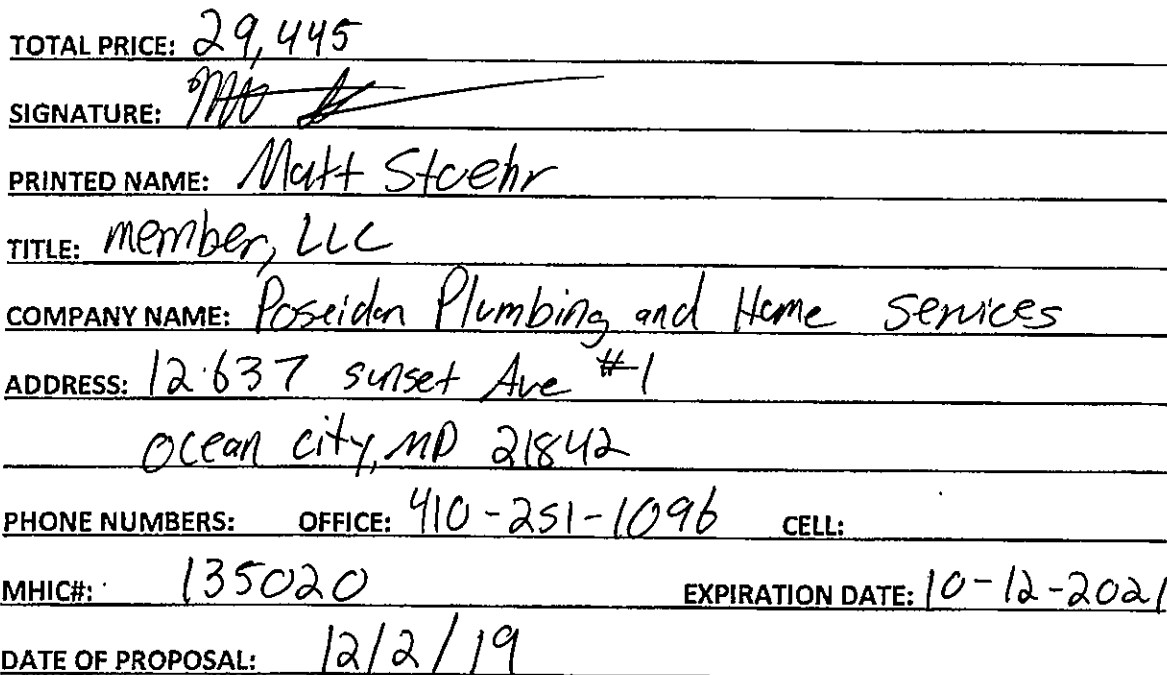 TOTAL PRICE: 29,445
SIGNATURE:
PRINTED NAME: Matt Stoehr
TITLE: member, LLC
COMPANY NAME: Poseidon Plumbing and Home services
ADDRESS: 12637 sunset Ave #1
Ocean city, MD 21842
PHONE NUMBERS: OFFICE: 410-251-1096 CELL:
MHIC#: 135020 EXPIRATION DATE: 10-12-2021
DATE OF PROPOSAL: 12/2/19